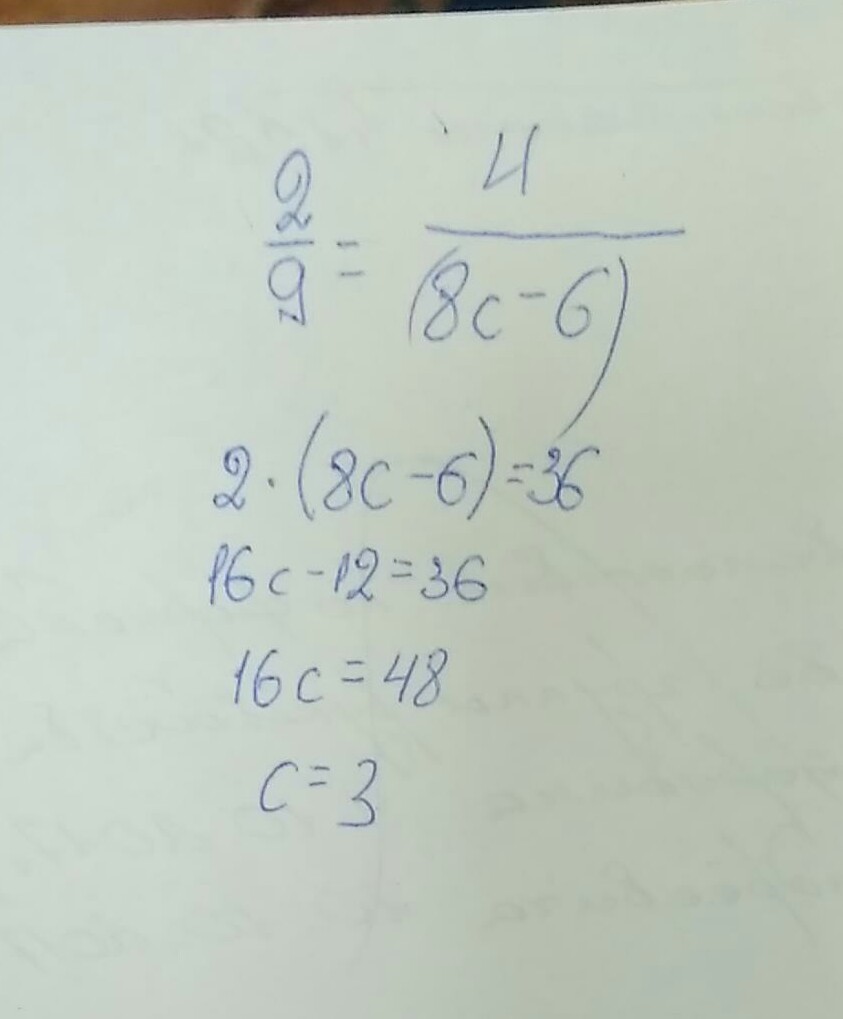 2/9 = 4/(8c-6)
2·(8c-6)=36
16c-12=36
16c=48
c=3